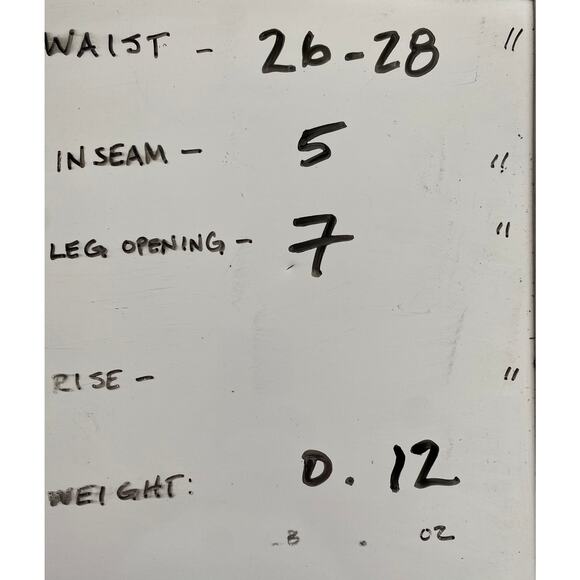 WAIST - 26-28 "
INSEAM - 5 "
LEG OPENING - 7 "
RISE - "
WEIGHT: 0.12
. oz